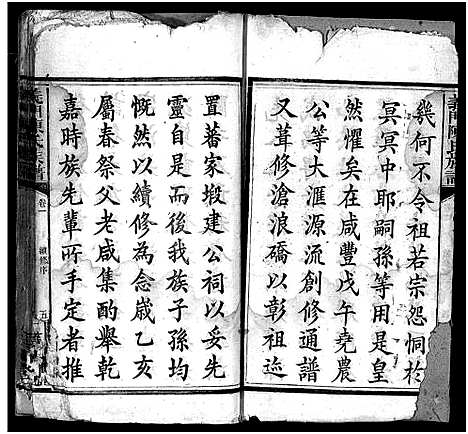 幾何不令祖若宗怨恫於
冥冥中耶嗣孫等用是皇
然懼矣在咸豐戊午堯農
公等大滙源流創修通譜
又葺修滄浪礄以彰祖迹
置蕃家塅建公祠以妥先
靈自是而後我族子孫均
慨然以續修為念嵗乙亥
屬春祭父老咸集酌舉乾
嘉時族先輩所手定者推
義門陳氏族譜
卷一
續修序
五